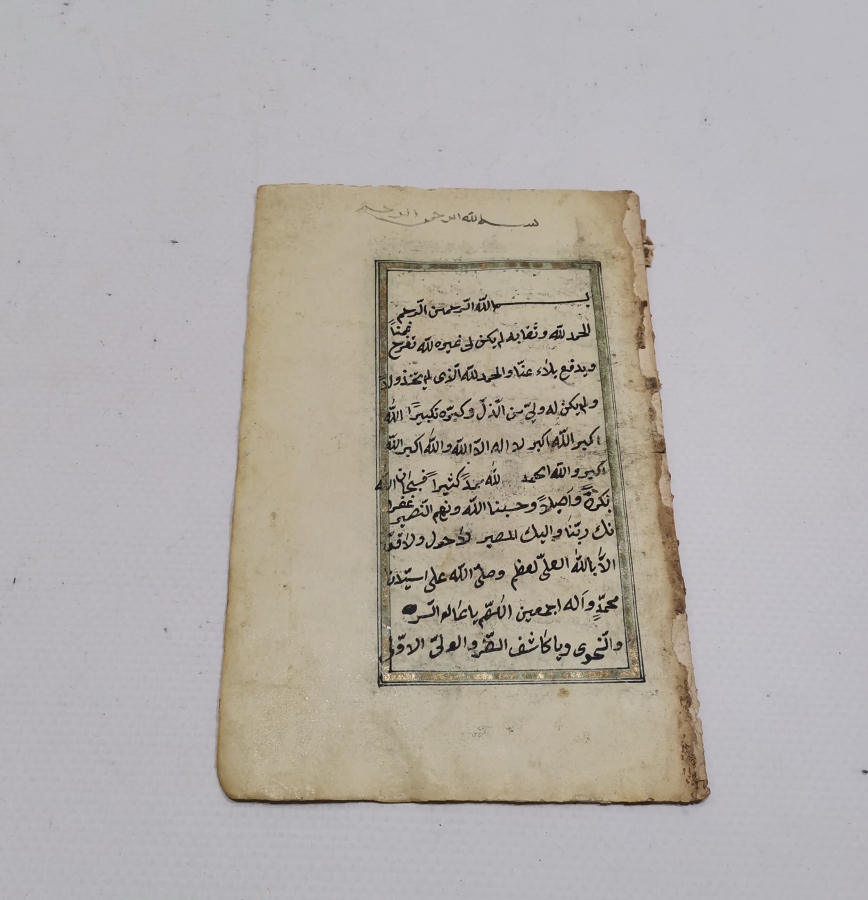 بسم الله الرحمن الرحيم
بسم الله الرّحمن الرّحيم
الحمد لله وثقا به لم يكن لى غيره لله تفرح غمنا
ويدفع بلاء عنّا والحمد لله الّذى لم يتخذ ولدًا
ولم يكن له ولىّ من الذّلّ وكبّره تكبيرًا اللّٰه
اكبر اللّٰه اكبر لا اله الاّ اللّٰه واللّٰه اكبر اللّٰه
اكبر والله الحمد لله كثيراً فسبحان الله
بكرةً واصيلاً وحسبنا اللّٰه ونعم النّصير غفرا
نك ربّنا واليك المصير لا حول ولا قوّة
الاّ باللّٰه العلىّ لعظم وصلىّ اللّٰه على
محمّدٍ واٰله اجمعين اللّهمّ يا عالم السّرّ
والنّجوى ويا كاشف الضّر والولىّ الاوّلى